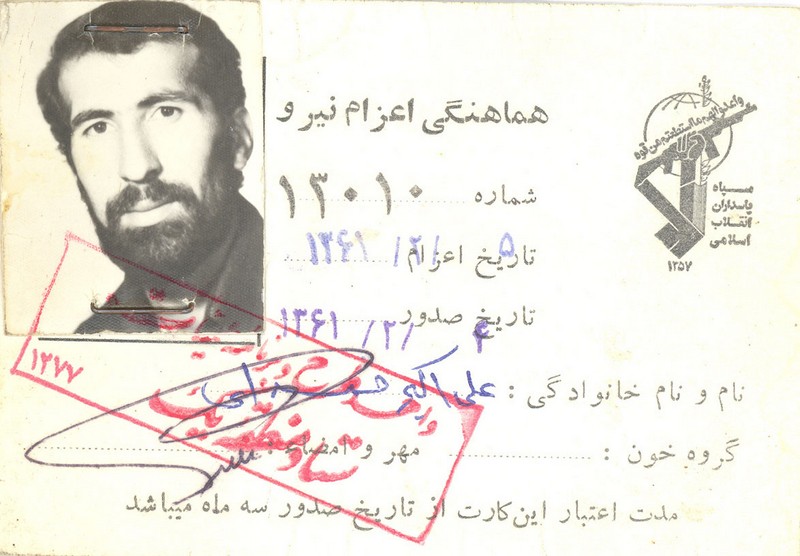 هماهنگی اعزام نیرو
واعدوالهم مااستطعتم من قوة
سپاه
پاسداران
انقلاب
اسلامی
۱۳۵۷
شماره ۱۳۰۱۰
تاریخ اعزام ۵ /۲/ ۱۳۶۱
تاریخ صدور ۴ /۲/ ۱۳۶۱
نام و نام خانوادگی : علی اکبر
گروه خون : مهر و امضاء :
مدت اعتبار این کارت از تاریخ صدور سه ماه میباشد
۱۲۷۷